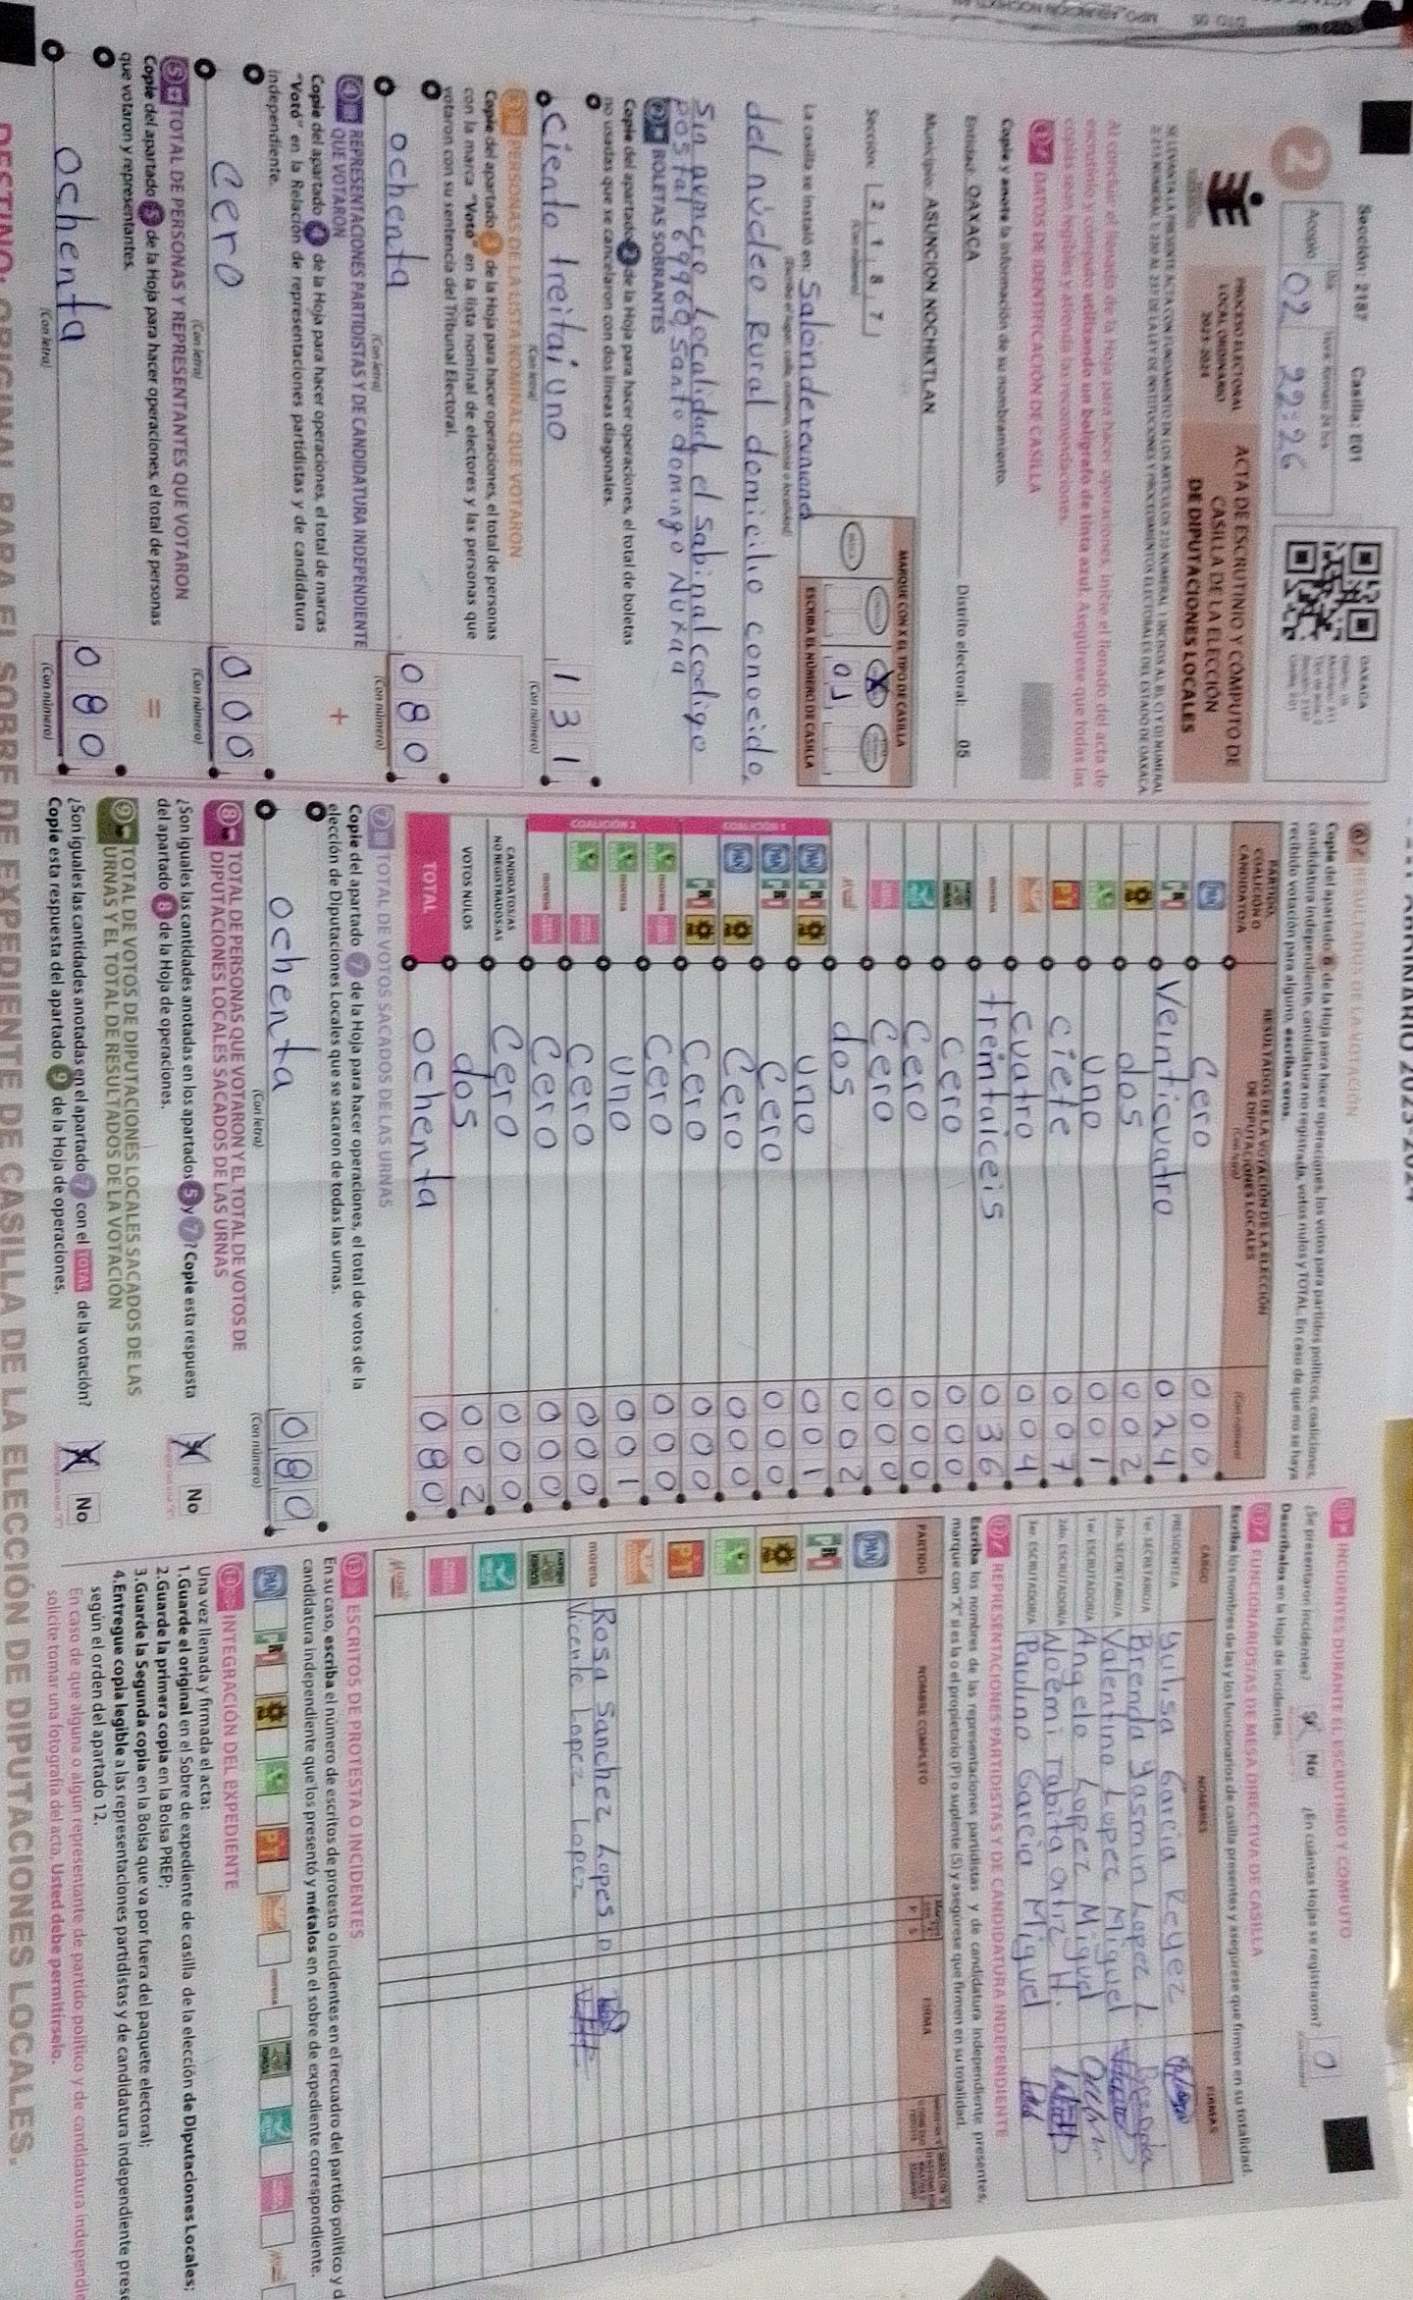 Sección: 2187 Casilla: E01
2
Acopio
02 22:26
OAXACA
PROCESO ELECTORAL
LOCAL ORDINARIO
2023-2024
ACTA DE ESCRUTINIO Y CÓMPUTO DE
CASILLA DE LA ELECCIÓN
DE DIPUTACIONES LOCALES
Al concluir el llenado de la Hoja para hacer operaciones, inicie el llenado del acta de
escrutinio y cómputo utilizando un bolígrafo de tinta azul. Asegúrese que todas las
copias sean legibles y atienda las recomendaciones.
1 DATOS DE IDENTIFICACIÓN DE CASILLA
Copie y anote la información de su nombramiento.
Entidad: OAXACA Distrito electoral: 05
Municipio: ASUNCION NOCHIXTLAN
Sección: 2 1 8 7
(Con número)
MARQUE CON X EL TIPO DE CASILLA
X
ESCRIBA EL NÚMERO DE CASILLA
01
La casilla se instaló en: Salon de reuniones
(Escriba el lugar, calle, número, colonia o localidad)
del núcleo Rural domicilio conocido,
Sin numero Localidad, el Sabinal codigo
postal 69960, santo domingo Nuxaa
2 BOLETAS SOBRANTES
Copie del apartado 2 de la Hoja para hacer operaciones, el total de boletas
no usadas que se cancelaron con dos líneas diagonales.
Ciento treitai Uno 131
(Con letra) (Con número)
3 PERSONAS DE LA LISTA NOMINAL QUE VOTARON
Copie del apartado 3 de la Hoja para hacer operaciones, el total de personas
con la marca "Votó" en la lista nominal de electores y las personas que
votaron con su sentencia del Tribunal Electoral.
ochenta 080
(Con letra) (Con número)
4 REPRESENTACIONES PARTIDISTAS Y DE CANDIDATURA INDEPENDIENTE
QUE VOTARON
+
Copie del apartado 4 de la Hoja para hacer operaciones, el total de marcas
"Votó" en la Relación de representaciones partidistas y de candidatura
independiente.
Cero 000
(Con letra) (Con número)
5 TOTAL DE PERSONAS Y REPRESENTANTES QUE VOTARON
=
Copie del apartado 5 de la Hoja para hacer operaciones, el total de personas
que votaron y representantes.
Ochenta 080
(Con letra) (Con número)
6 RESULTADOS DE LA VOTACIÓN
Copie del apartado 6 de la Hoja para hacer operaciones, los votos para partidos políticos, coaliciones,
candidatura independiente, candidatura no registrada, votos nulos y TOTAL. En caso de que no se haya
recibido votación para alguno, escriba ceros.
PARTIDO,
COALICIÓN O
CANDIDATO/A
RESULTADOS DE LA VOTACIÓN DE LA ELECCIÓN
DE DIPUTACIONES LOCALES
(Con letra) (Con número)
PAN Cero 000
PRI Veinticuatro 024
dos 002
Uno 001
PT ciete 007
cuatro 004
morena treintaiceis 036
cero 000
cero 000
Cero 000
dos 002
COALICIÓN 1
PAN PRI Uno 001
PAN PRI Cero 000
PAN Cero 000
PRI Cero 000
COALICIÓN 2
morena Cero 000
morena Uno 001
cero 000
morena Cero 000
CANDIDATOS/AS
NO REGISTRADOS/AS Cero 000
VOTOS NULOS dos 002
TOTAL ochenta 080
7 TOTAL DE VOTOS SACADOS DE LAS URNAS
Copie del apartado 7 de la Hoja para hacer operaciones, el total de votos de la
elección de Diputaciones Locales que se sacaron de todas las urnas.
ochenta 080
(Con letra) (Con número)
8 TOTAL DE PERSONAS QUE VOTARON Y EL TOTAL DE VOTOS DE
DIPUTACIONES LOCALES SACADOS DE LAS URNAS
¿Son iguales las cantidades anotadas en los apartados 5 y 7? Copie esta respuesta
del apartado 8 de la Hoja de operaciones.
X No
9 TOTAL DE VOTOS DE DIPUTACIONES LOCALES SACADOS DE LAS
URNAS Y EL TOTAL DE RESULTADOS DE LA VOTACIÓN
¿Son iguales las cantidades anotadas en el apartado 7 con el TOTAL de la votación?
Copie esta respuesta del apartado 9 de la Hoja de operaciones.
X No
INCIDENTES DURANTE EL ESCRUTINIO Y CÓMPUTO
¿Se presentaron incidentes? No ¿En cuántas Hojas se registraron? 0
Descríbalos en la Hoja de incidentes.
FUNCIONARIOS/AS DE MESA DIRECTIVA DE CASILLA
Escriba los nombres de las y los funcionarios de casilla presentes y asegúrese que firmen en su totalidad.
CARGO NOMBRES FIRMAS
PRESIDENTE/A Yulisa Garcia Reyez
1er. SECRETARIO/A Brenda Yasmin Lopez L.
2do. SECRETARIO/A Valentino Lopez Miguel
1er. ESCRUTADOR/A Angelo Lopez Miguel
2do. ESCRUTADOR/A Noemi rabita ortiz H.
3er. ESCRUTADOR/A Paulino Garcia Miguel
12 REPRESENTACIONES PARTIDISTAS Y DE CANDIDATURA INDEPENDIENTE
Escriba los nombres de las representaciones partidistas y de candidatura independiente presentes,
marque con "X" si es la o el propietario (P) o suplente (S) y asegúrese que firmen en su totalidad.
PARTIDO NOMBRE COMPLETO FIRMA
PAN
PRI
PT
morena Rosa Sanchez Lopes
Vicente Lopez Lopez
13 ESCRITOS DE PROTESTA O INCIDENTES
En su caso, escriba el número de escritos de protesta o incidentes en el recuadro del partido político y d
candidatura independiente que los presentó y métalos en el sobre de expediente correspondiente.
PAN PRI PT morena
INTEGRACIÓN DEL EXPEDIENTE
Una vez llenada y firmada el acta:
1. Guarde el original en el Sobre de expediente de casilla de la elección de Diputaciones Locales;
2. Guarde la primera copia en la Bolsa PREP;
3. Guarde la Segunda copia en la Bolsa que va por fuera del paquete electoral;
4. Entregue copia legible a las representaciones partidistas y de candidatura independiente pres
según el orden del apartado 12.
En caso de que alguna o algún representante de partido político y de candidatura independie
solicite tomar una fotografía del acta. Usted debe permitírselo.
DESTINO: ORIGINAL PARA EL SOBRE DE EXPEDIENTE DE CASILLA DE LA ELECCIÓN DE DIPUTACIONES LOCALES.